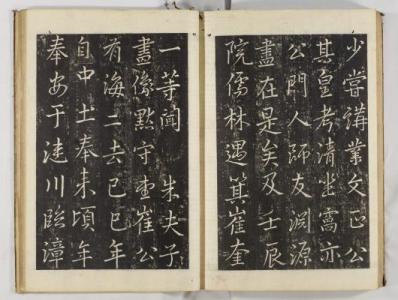 少嘗講業文正公
其皇考清坐窩亦
公門人師友淵源
盡在是矣及壬辰
院儒林遇箕崔奎
一等閣 朱夫子
畫像點守奎崔公
有海二去己巳年
自中土奉来頃年
奉安于漣川臨漳